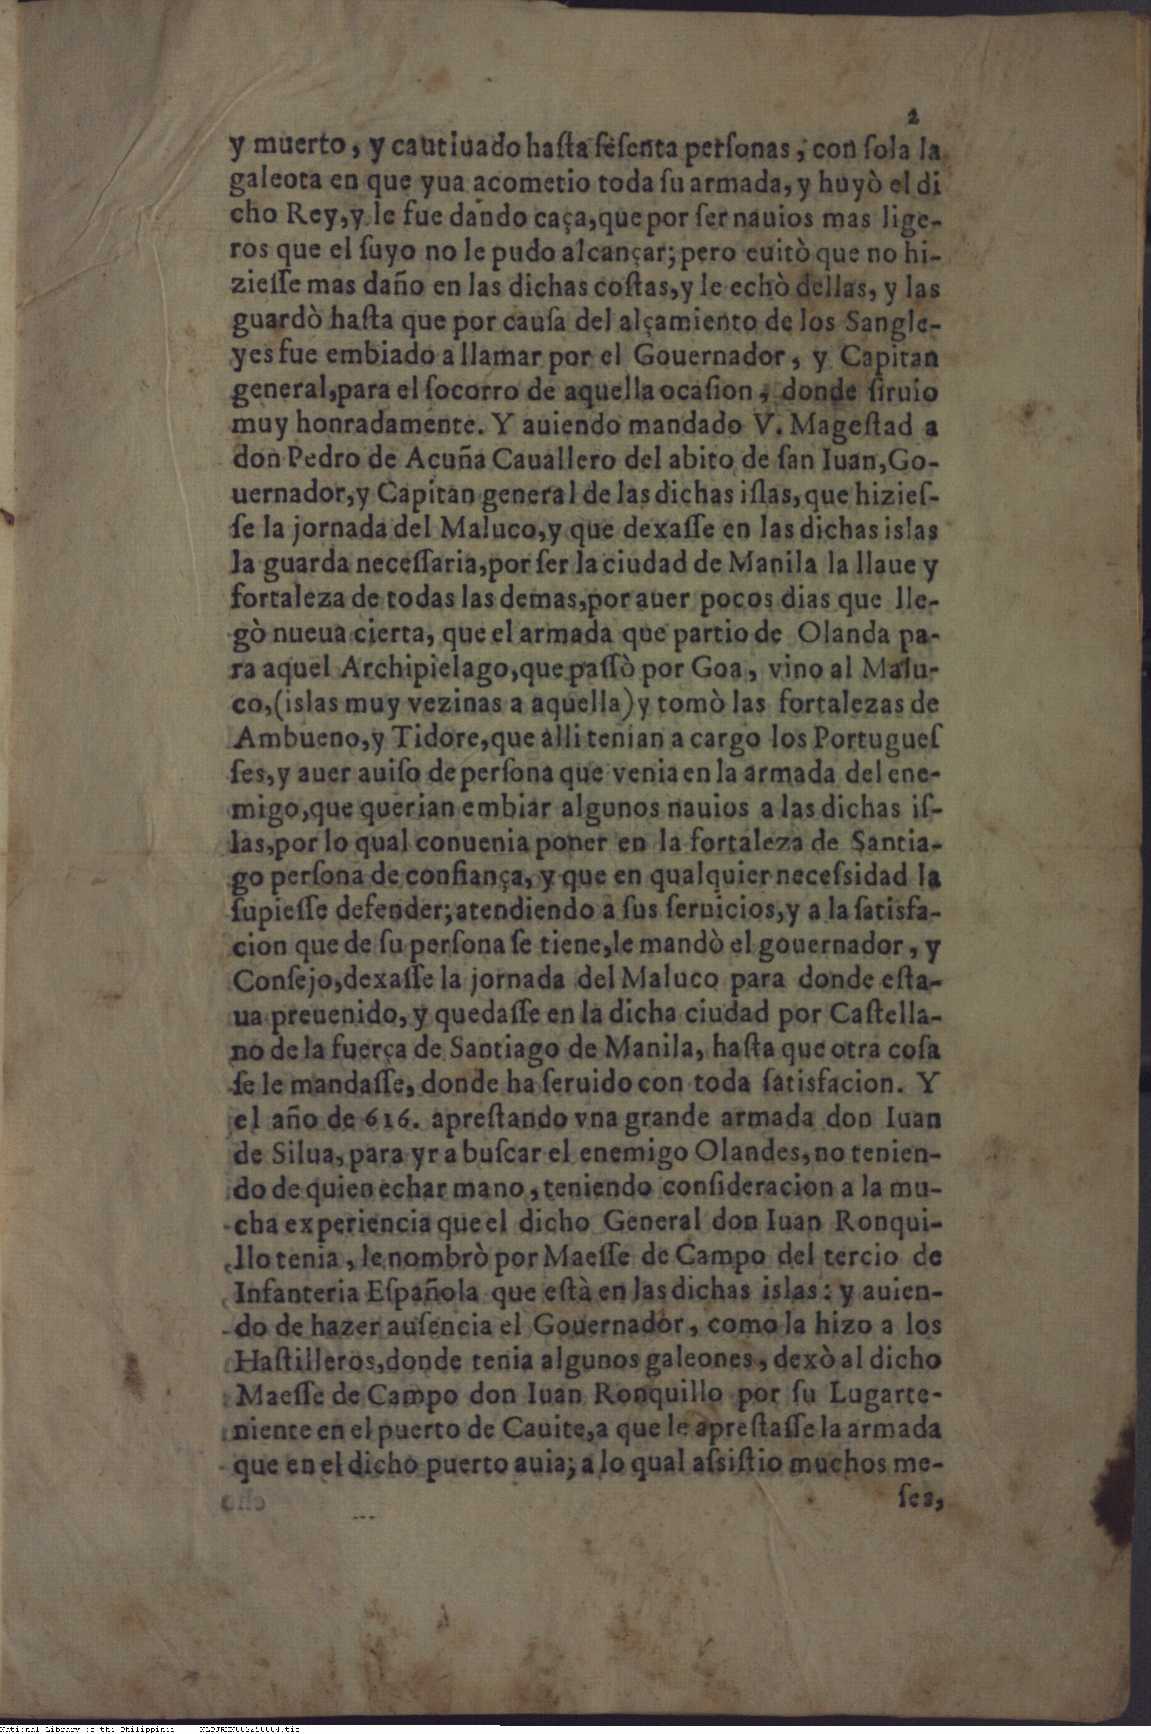 2
y muerto, y cautiuado hasta sesenta personas, con sola la
galeota en que yua acometio toda su armada, y huyò el di
cho Rey, y le fue dando caça, que por ser nauios mas lige-
ros que el suyo no le pudo alcançar; pero euitò que no hi-
ziesse mas daño en las dichas costas, y le echò dellas, y las
guardò hasta que por causa del alçamiento de los Sangle-
yes fue embiado a llamar por el Gouernador, y Capitan
general, para el socorro de aquella ocasion, donde siruio
muy honradamente. Y auiendo mandado V. Magestad a
don Pedro de Acuña Cauallero del abito de san Iuan, Go-
uernador, y Capitan general de las dichas islas, que hizies-
se la jornada del Maluco, y que dexasse en las dichas islas
la guarda necessaria, por ser la ciudad de Manila la llaue y
fortaleza de todas las demas, por auer pocos dias que lle-
gò nueua cierta, que el armada que partio de Olanda pa-
ra aquel Archipielago, que passò por Goa, vino al Malu-
co, (islas muy vezinas a aquella) y tomò las fortalezas de
Ambueno, y Tidore, que alli tenian a cargo los Portugues
ses, y auer auiso de persona que venia en la armada del ene-
migo, que querian embiar algunos nauios a las dichas is-
las, por lo qual conuenia poner en la fortaleza de Santia-
go persona de confiança, y que en qualquier necessidad la
supiesse defender; atendiendo a sus seruicios, y a la satisfa-
cion que de su persona se tiene, le mandò el gouernador, y
Consejo, dexasse la jornada del Maluco para donde esta-
ua preuenido, y quedasse en la dicha ciudad por Castella-
no de la fuerça de Santiago de Manila, hasta que otra cosa
se le mandasse, donde ha seruido con toda satisfacion. Y
el año de 616. aprestando vna grande armada don Iuan
de Silua, para yr a buscar el enemigo Olandes, no tenien-
do de quien echar mano, teniendo consideracion a la mu-
cha experiencia que el dicho General don Iuan Ronqui-
llo tenia, le nombrò por Maesse de Campo del tercio de
Infanteria Española que està en las dichas islas: y auien-
do de hazer ausencia el Gouernador, como la hizo a los
Hastilleros, donde tenia algunos galeones, dexò al dicho
Maesse de Campo don Iuan Ronquillo por su Lugarte-
niente en el puerto de Cauite, a que le aprestasse la armada
que en el dicho puerto auia; a lo qual assistio muchos me-
ses,
National Library of the Philippines